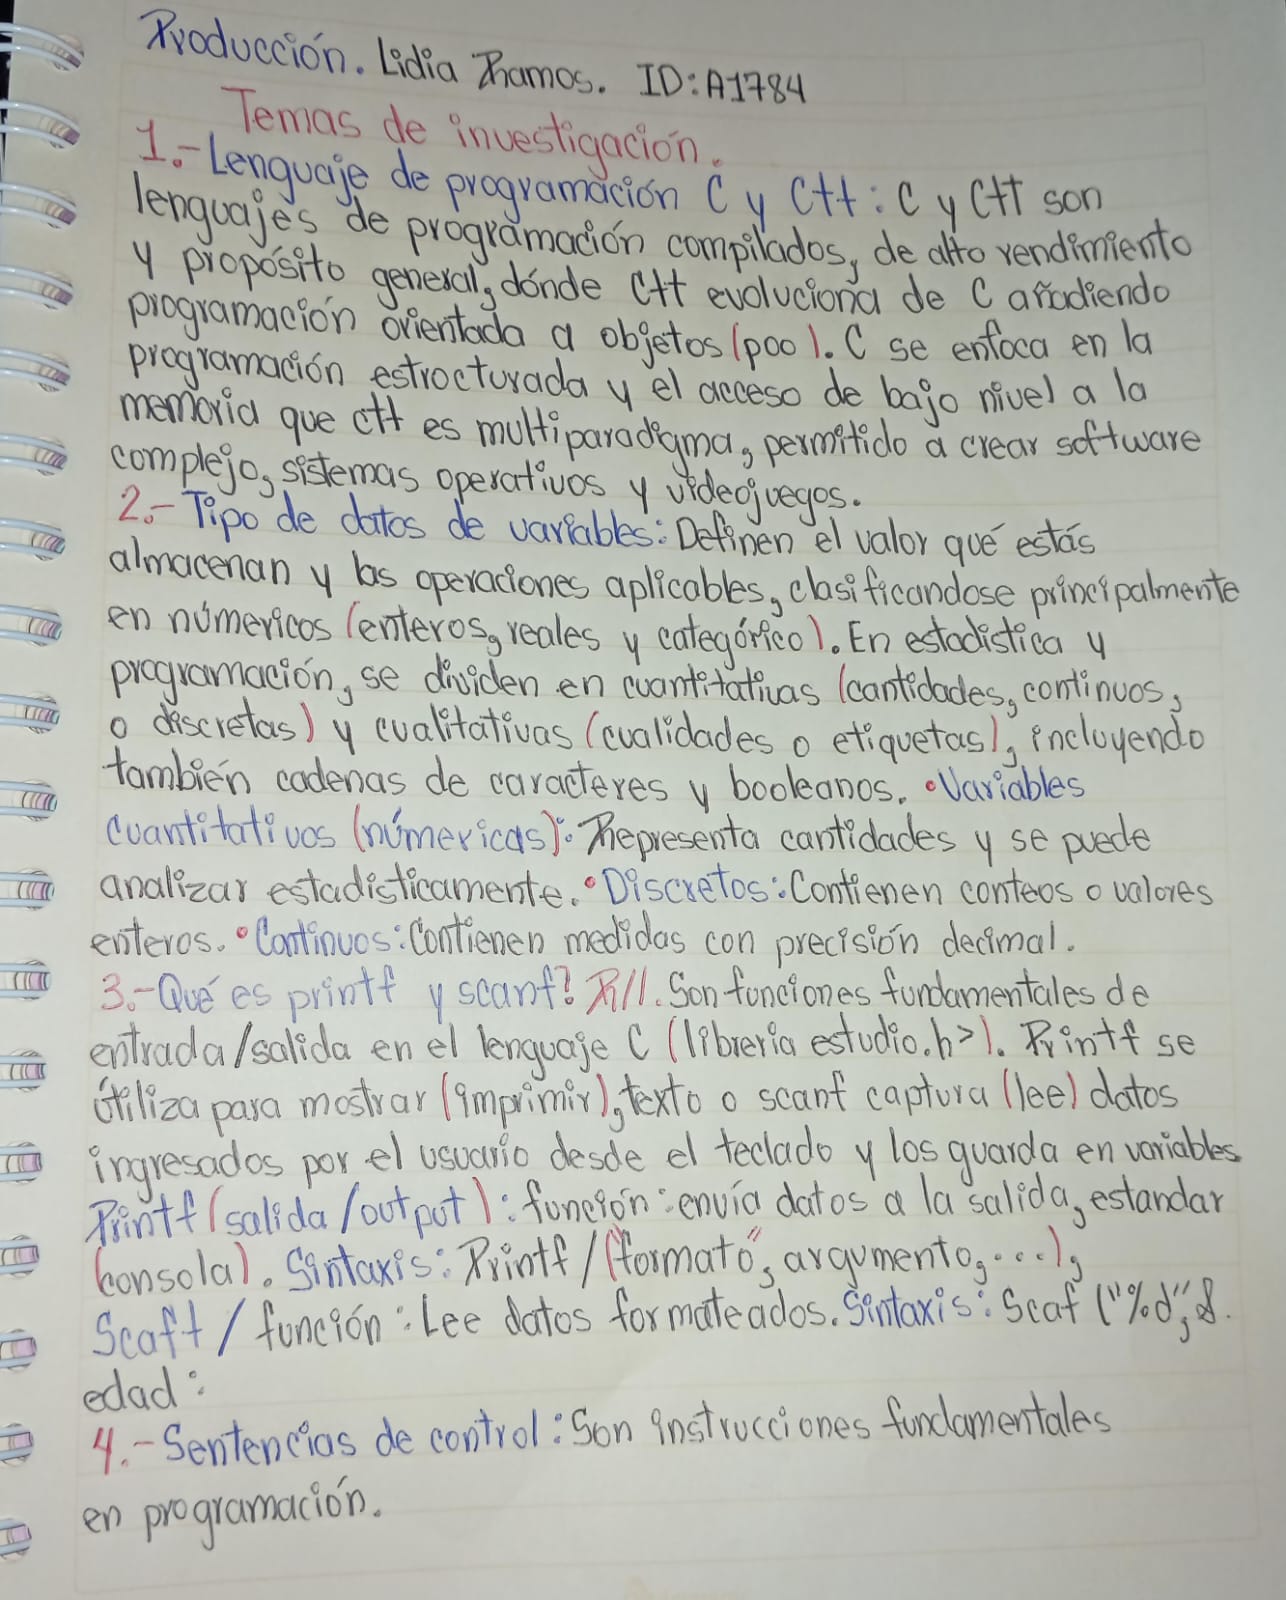 Producción. Lidia Ramos. ID: A1784
Temas de investigación.
1.- Lenguaje de programación C y C++: C y C++ son
lenguajes de programación compilados, de alto rendimiento
y propósito general, dónde C++ evoluciona de C añadiendo
programación orientada a objetos (poo). C se enfoca en la
programación estructurada y el acceso de bajo nivel a la
memoria que c++ es multiparadigma, permitido a crear software
complejo, sistemas operativos y videojuegos.
2.- Tipo de datos de variables: Definen el valor qué estás
almacenan y las operaciones aplicables, clasificandose principalmente
en númericos (enteros, reales y categórico). En estadistica y
programación, se dividen en cuantitativas (cantidades, continuos,
o discretas) y cualitativas (cualidades o etiquetas), incluyendo
también cadenas de caracteres y booleanos. • Variables
cuantitativas (númericas): Representa cantidades y se puede
analizar estadisticamente. • Discretos: Contienen conteos o valores
enteros. • Continuos: Contienen medidas con precisión decimal.
3.- Qué es printf y scanf? R//. Son funciones fundamentales de
entrada/salida en el lenguaje C (libreria estudio.h>). Printf se
útiliza para mostrar (imprimir), texto o scanf captura (lee) datos
ingresados por el usuario desde el teclado y los guarda en variables.
Printf (salida/output): función: envía datos a la salida, estandar
(consola). Sintaxis: Printf/("formato", argumento, ...),
Scaft/función: Lee datos formateados. Sintaxis: Scaf ("%d", &.
edad:
4.- Sentencias de control: Son instrucciones fundamentales
en programación.